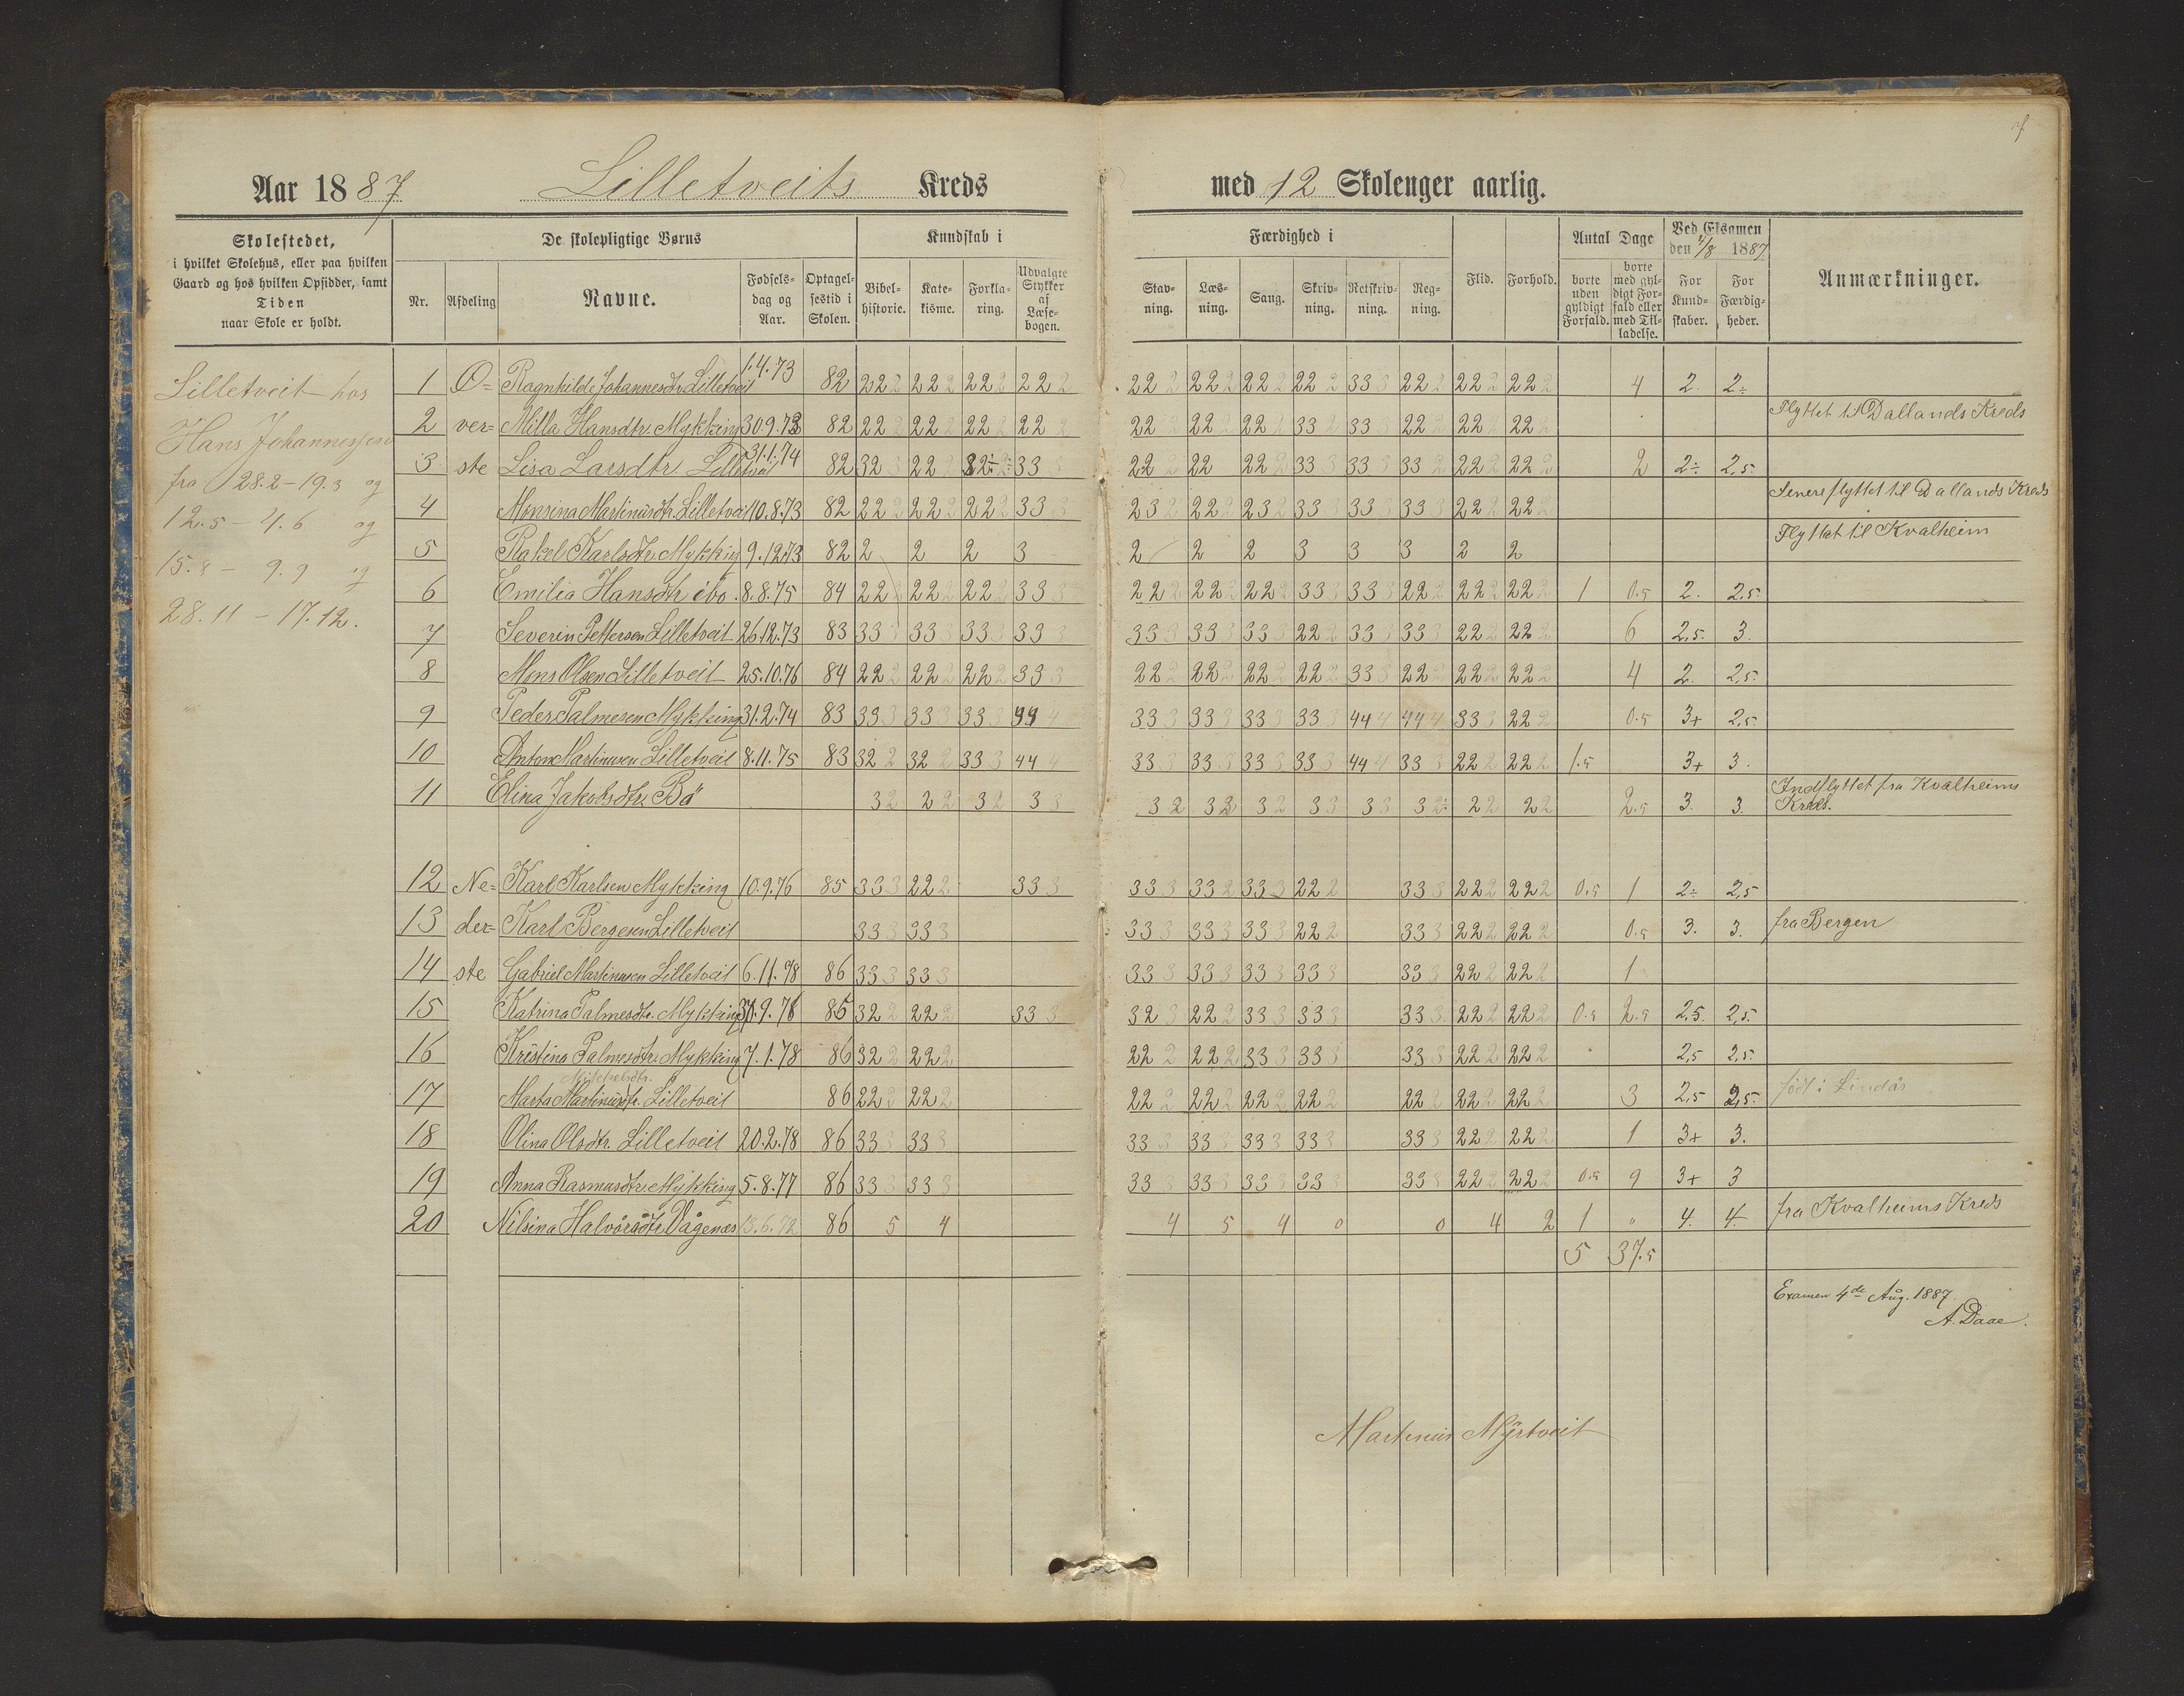 Aar 1887 Lilletveits Kreds med 12 Skolenger aarlig.
Skolestedet,
i hvilket Skolehus, eller paa hvilken
Gaard og hos hvilken Opsidder, samt
Tiden
naar Skole er holdt.
De skolepligtige Børns
Nr. Afdeling Navne. Fødsels-dag og Aar. Optagel-sestid i Skolen.
Kundskab i
Bibel-historie. Kate-kisme. Forkla-ring. Udvalgte Stykker af Læse-bogen.
Færdighed i
Stav-ning. Læs-ning. Sang. Skriv-ning. Retskriv-ning. Reg-ning.
Flid. Forhold.
Antal Dage
borte uden gyldigt Forfald. borte med gyl-digt For-fald eller med Til-ladelse.
Ved Eksamen den 4/8 1887
For Kund-skaber. For Færdig-heder.
Anmærkninger.
Lilletveit hos
Hans Johannessen
fra 28.2-19.3 og
12.5 - 4.6 og
15.8 - 9.9 og
28.11 - 17.12.
1 Ø= Ragnhilde Johannesdtr Lilletveit 1.4.73 82 222 222 222 222 222 222 222 222 333 222 222 222 4 2. 2÷
2 ver= Milla Hansdtr. Mykking 30.9.73 82 222 222 222 222 222 222 222 332 333 222 222 222 Flyttet til Dallands Kreds
3 ste Lisa Larsdtr. Lilletveit 31.1.74 82 323 222 333 222 22 222 333 333 332 222 222 2 2÷ 2,5.
4 Monsina Martinusdtr. Lilletveit 10.8.73 82 222 222 222 333 232 222 232 333 333 333 222 222 Senere flyttet til Dallands Kreds
5 Rakel Karlsdtr. Mykking 9.12.73 82 2 2 2 3 2 2 2 3 3 3 2 2 Flyttet til Kvalheim
6 Emilia Hansdtr ibo. 8.8.75 84 222 222 222 333 222 223 222 333 333 222 222 222 1 0.5 2. 2,5.
7 Severin Pettersen Lilletveit 26.12.73 83 333 333 333 333 333 333 333 222 333 333 222 222 6 2,5. 3.
8 Mons Olsen Lilletveit 25.10.76 84 222 222 222 333 222 222 222 222 333 222 222 222 4 2. 2,5.
9 Peder Palmesen Mykking 31.2.74 83 333 333 333 333 333 333 333 444 444 333 222 0.5 3+ 2,5.
10 Anton Martinusen Lilletveit 8.11.75 83 322 322 333 444 333 333 333 333 444 333 222 222 1.5 3+ 3.
11 Elina Jakobsdtr. Bø 32 22 32 33 32 32 32 33 33 32 22 22 2.5 3. 3. Indflyttet fra Kvalheims
Kreds.
12 Ne= Karl Karlsen Mykking 10.9.76 85 333 222 333 333 332 333 222 333 222 222 0.5 1 2÷ 2,5
13 der= Karl Bergesen Lilletveit 333 333 333 333 333 222 333 222 222 0.5 3. 3. fra Bergen
14 ste Gabriel Martinusen Lilletveit 6.11.78 86 333 333 333 333 333 333 333 222 222 1
15 Katrina Palmesdtr. Mykking 9.76 85 322 222 333 323 222 333 333 333 222 222 0.5 2.5 2,5. 2,5.
16 Kristina Palmesdtr. Mykking 7.1.78 86 322 222 222 222 333 333 333 222 222 2,5 2,5.
Mikkelsdtr.
17 Marta Martinusdtr. Lilletveit 86 222 222 222 222 222 222 222 222 222 3 2,5 2,5. født i Lindås
18 Olina Olsdtr. Lilletveit 20.2.78 86 333 333 333 333 333 333 333 222 222 1 3+ 3.
19 Anna Rasmusdtr. Mykking 5.8.77 86 333 333 333 333 333 333 333 222 222 0.5 9 3+ 3
20 Nilsina Halvorsdtr Vågenæs 13.6.72 86 5 4 4 5 4 0 0 4 2 1 " 4. 4. fra Kvalheims Kreds
5 37.5
Examen 4de Aug. 1887.
A. Daae.
Martinus Myrtveit